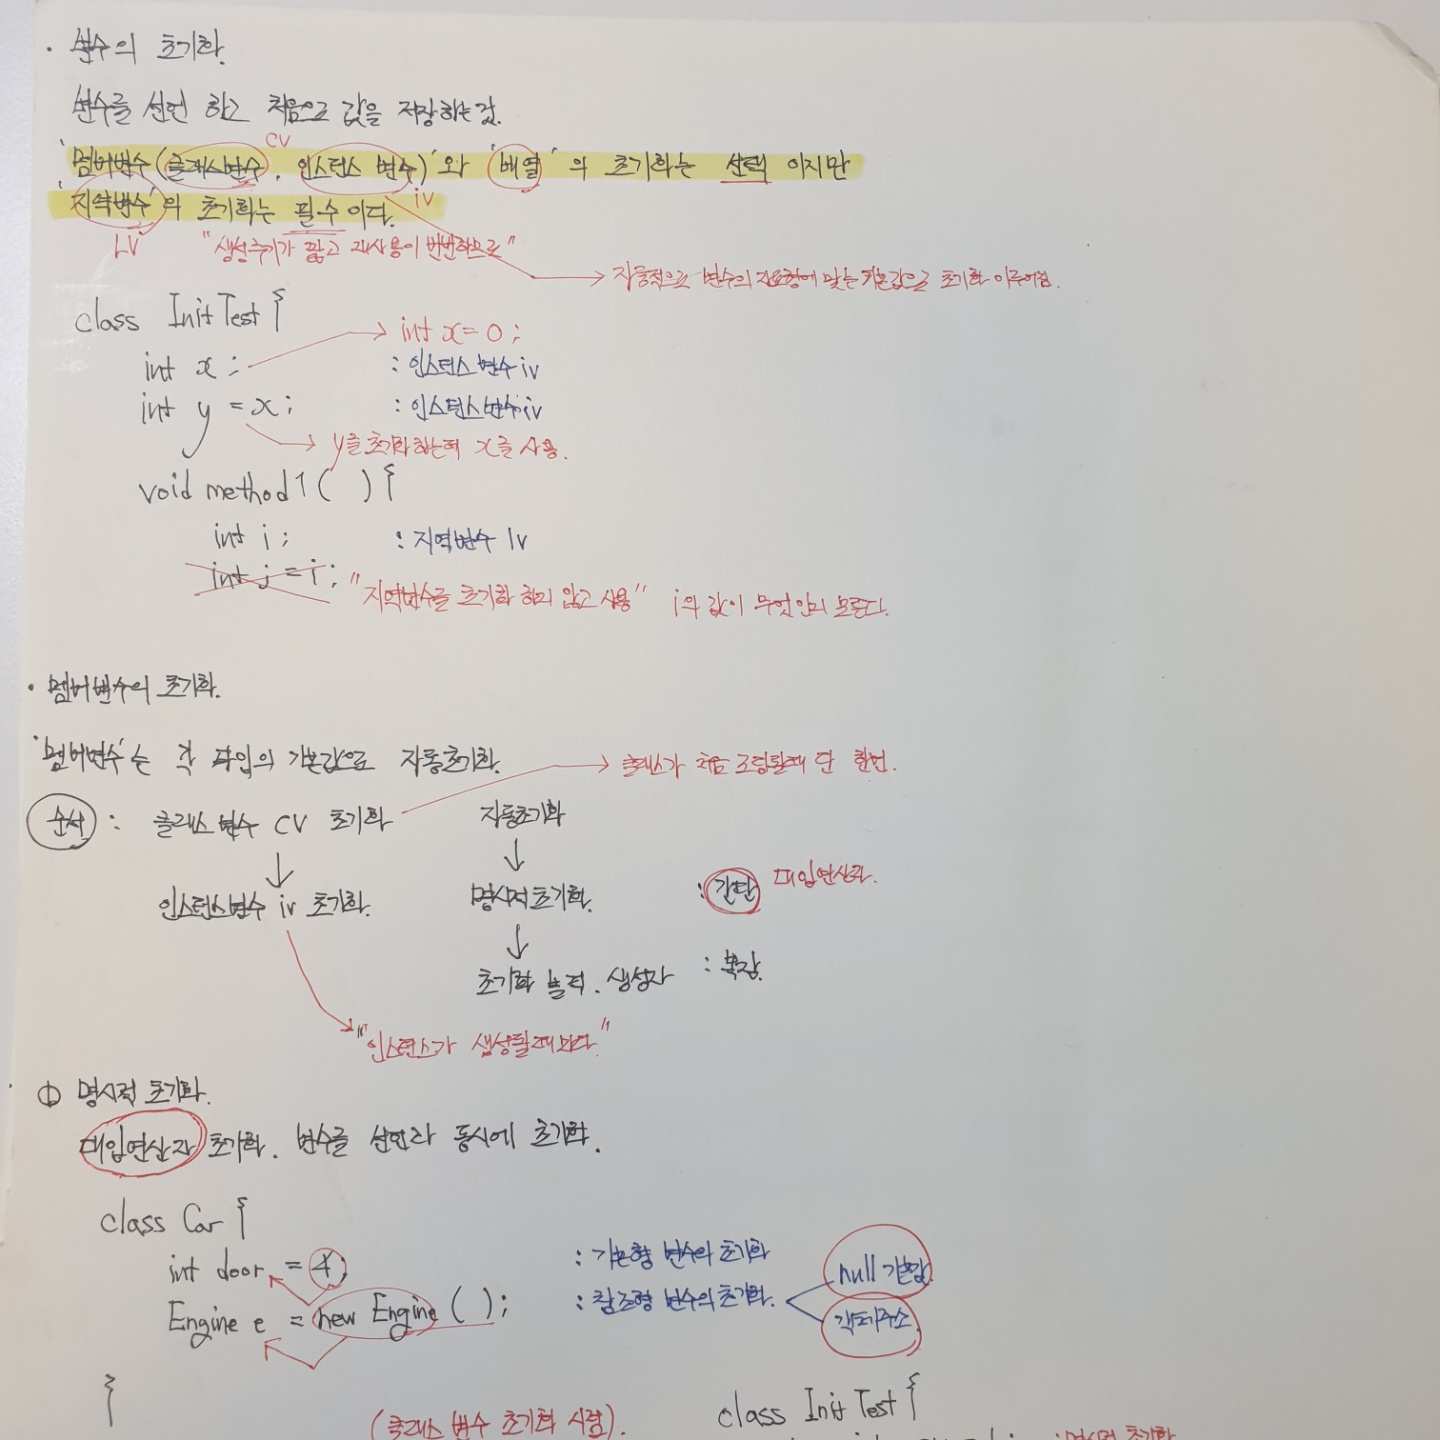 · 변수의 초기화.
변수를 선언 하고 처음으로 값을 저장하는것.
cv
'멤버변수(클래스변수, 인스턴스 변수)'와 '배열'의 초기화는 선택 이지만
'지역변수'의 초기화는 필수이다.
iv
LV
"생성주기가 짧고 재사용이 빈번하므로"
→ 자동적으로 변수의 자료형에 맞는 기본값으로 초기화 이루어짐.
class InitTest {
→ int x=0;
int x; : 인스턴스변수 iv
int y = x; : 인스턴스변수 iv
→ y를 초기화하는데 x를 사용.
void method1( ) {
int i; : 지역변수 lv
int j = i; "지역변수를 초기화 하지 않고 사용" i의 값이 무엇인지 모른다.
· 멤버변수의 초기화.
'멤버변수'는 각 타입의 기본값으로 자동초기화. → 클래스가 처음 로딩될때 단 한번.
순서 : 클래스 변수 CV 초기화 자동초기화
↓ ↓
인스턴스변수 iv 초기화. 명시적초기화. : 간단 대입연산자.
↓
초기화 블럭, 생성자 : 복잡.
"인스턴스가 생성될때마다."
① 명시적 초기화.
대입연산자 초기화. 변수를 선언과 동시에 초기화.
class Car {
int door = 4; : 기본형 변수의 초기화
Engine e = new Engine( ); : 참조형 변수의 초기화. null 기본값.
객체주소.
}
(클래스 변수 초기화 시점). class InitTest {
: 명시적 초기화